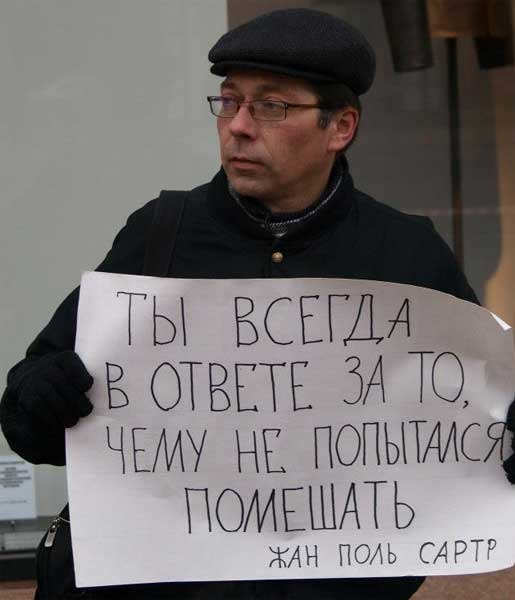 ТЫ ВСЕГДА
В ОТВЕТЕ ЗА ТО,
ЧЕМУ НЕ ПОПЫТАЛСЯ
ПОМЕШАТЬ
ЖАН ПОЛЬ САРТР